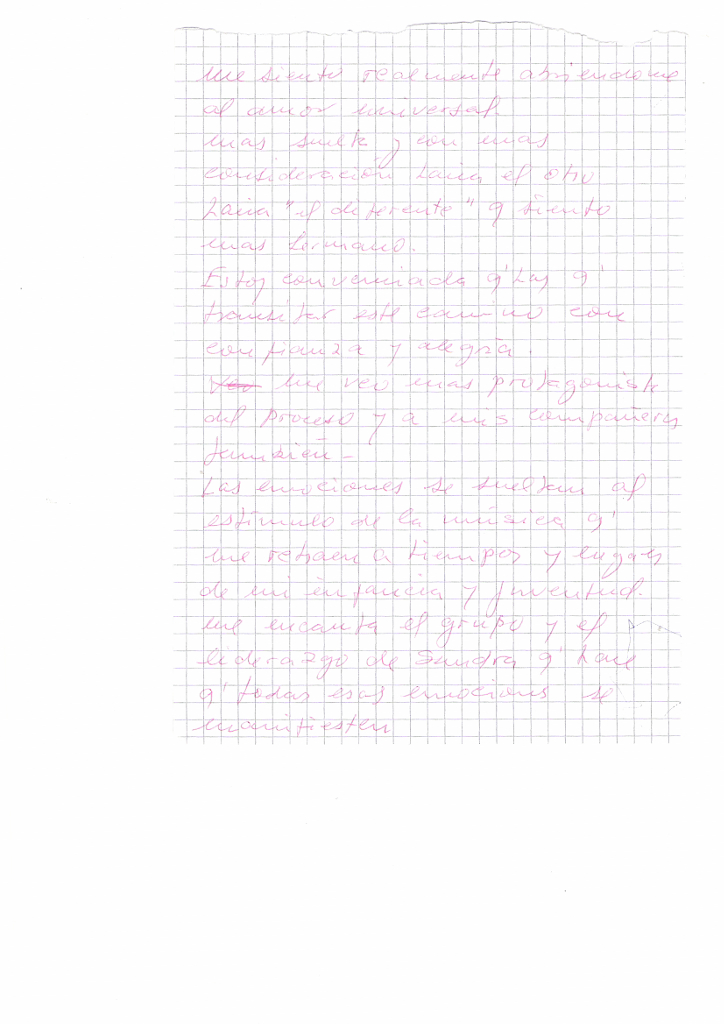 Me siento realmente abriendome
al amor universal.
mas suelta y con mas
consideración hacia el otro
hacia "el diferente" q siento
mas hermano.
Estoy convenciada q' hay q'
transitar este camino con
confianza y alegría.
Veo me veo mas protagonista
del proceso y a mis compañeros
también -
Las emociones se sueltan al
estímulo de la música q'
me retraen a tiempos y lugares
de mi infancia y juventud.
Me encanta el grupo y el
liderazgo de Sandra q' hace
q' todas esas emociones se
manifiesten